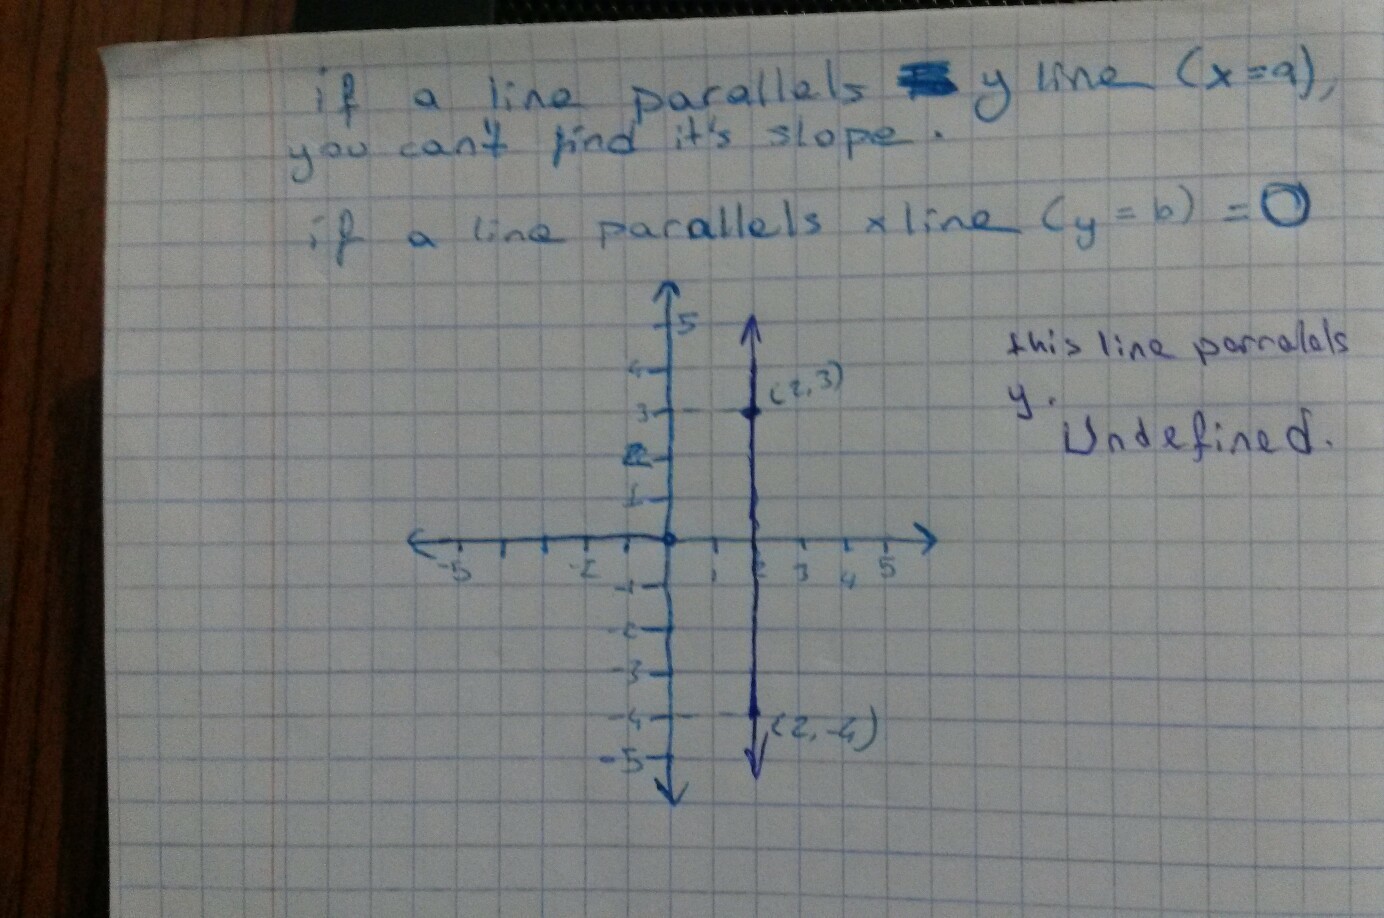 if a line parallels y line (x=a),
you can't find it's slope.
if a line parallels x line (y=b) = 0
5
4
3
2
1
(2,3)
this line parralals
y.
Undefined.
-5 -2 1 2 3 4 5
-1
-2
-3
-4
-5
(2,-4)